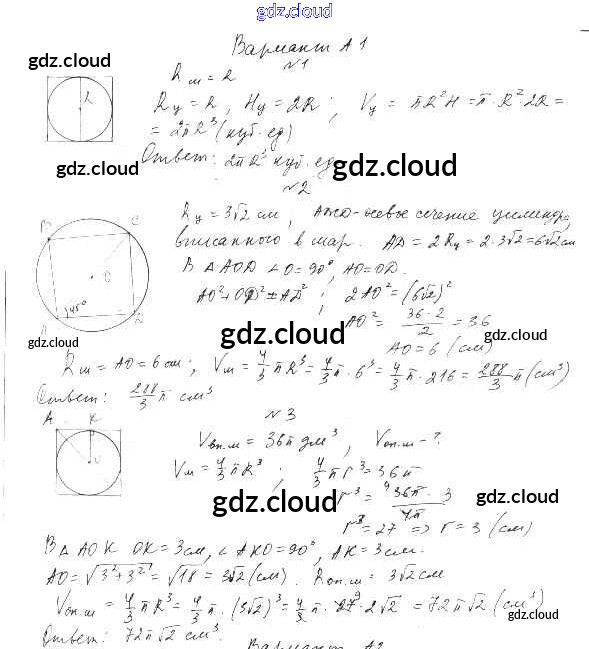 gdz.cloud
Вариант А1
gdz.cloud
N1
Rш = R
R
Rц = R, Hц = 2R; Vц = πR²H = π·R²·2R =
= 2πR³ (куб. ед)
gdz.cloud
Ответ: 2πR³ куб. ед.
gdz.cloud
N2
Rц = 3√2 см, осевое сечение цилиндра,
B C
вписанного в шар. AD = 2Rц = 2·3√2 = 6√2 см
O
В △ AOD ∠O = 90°, AO = OD.
AO² + OD² = AD²; 2AO² = (6√2)²
45°
AO² = 36·2/2 = 36
gdz.cloud gdz.cloud gdz.cloud
AO = 6 (см)
Rш = AO = 6 см; Vш = 4/3 πR³ = 4/3 π·6³ = 4/3 π·216 = 288/3 π (см³)
Ответ: 288/3 π см³
N3
A K
O
Vвп.ш = 36π дм³, Vоп.ш - ?
Vш = 4/3 πR³; 4/3 πr³ = 36π
gdz.cloud gdz.cloud
r³ = 9 36π·3/4π
r³ = 27 => r = 3 (см)
В △ AOK OK = 3 см, ∠AKO = 90°, AK = 3 см.
AO = √3²+3² = √18 = 3√2 (см). Rоп.ш = 3√2 см
Vоп.ш = 4/3 πR³ = 4/3 π·(3√2)³ = 4/3 π·27 9·2√2 = 72π√2 (см³)
gdz.cloud
Ответ: 72π√2 см³.
Вариант А2